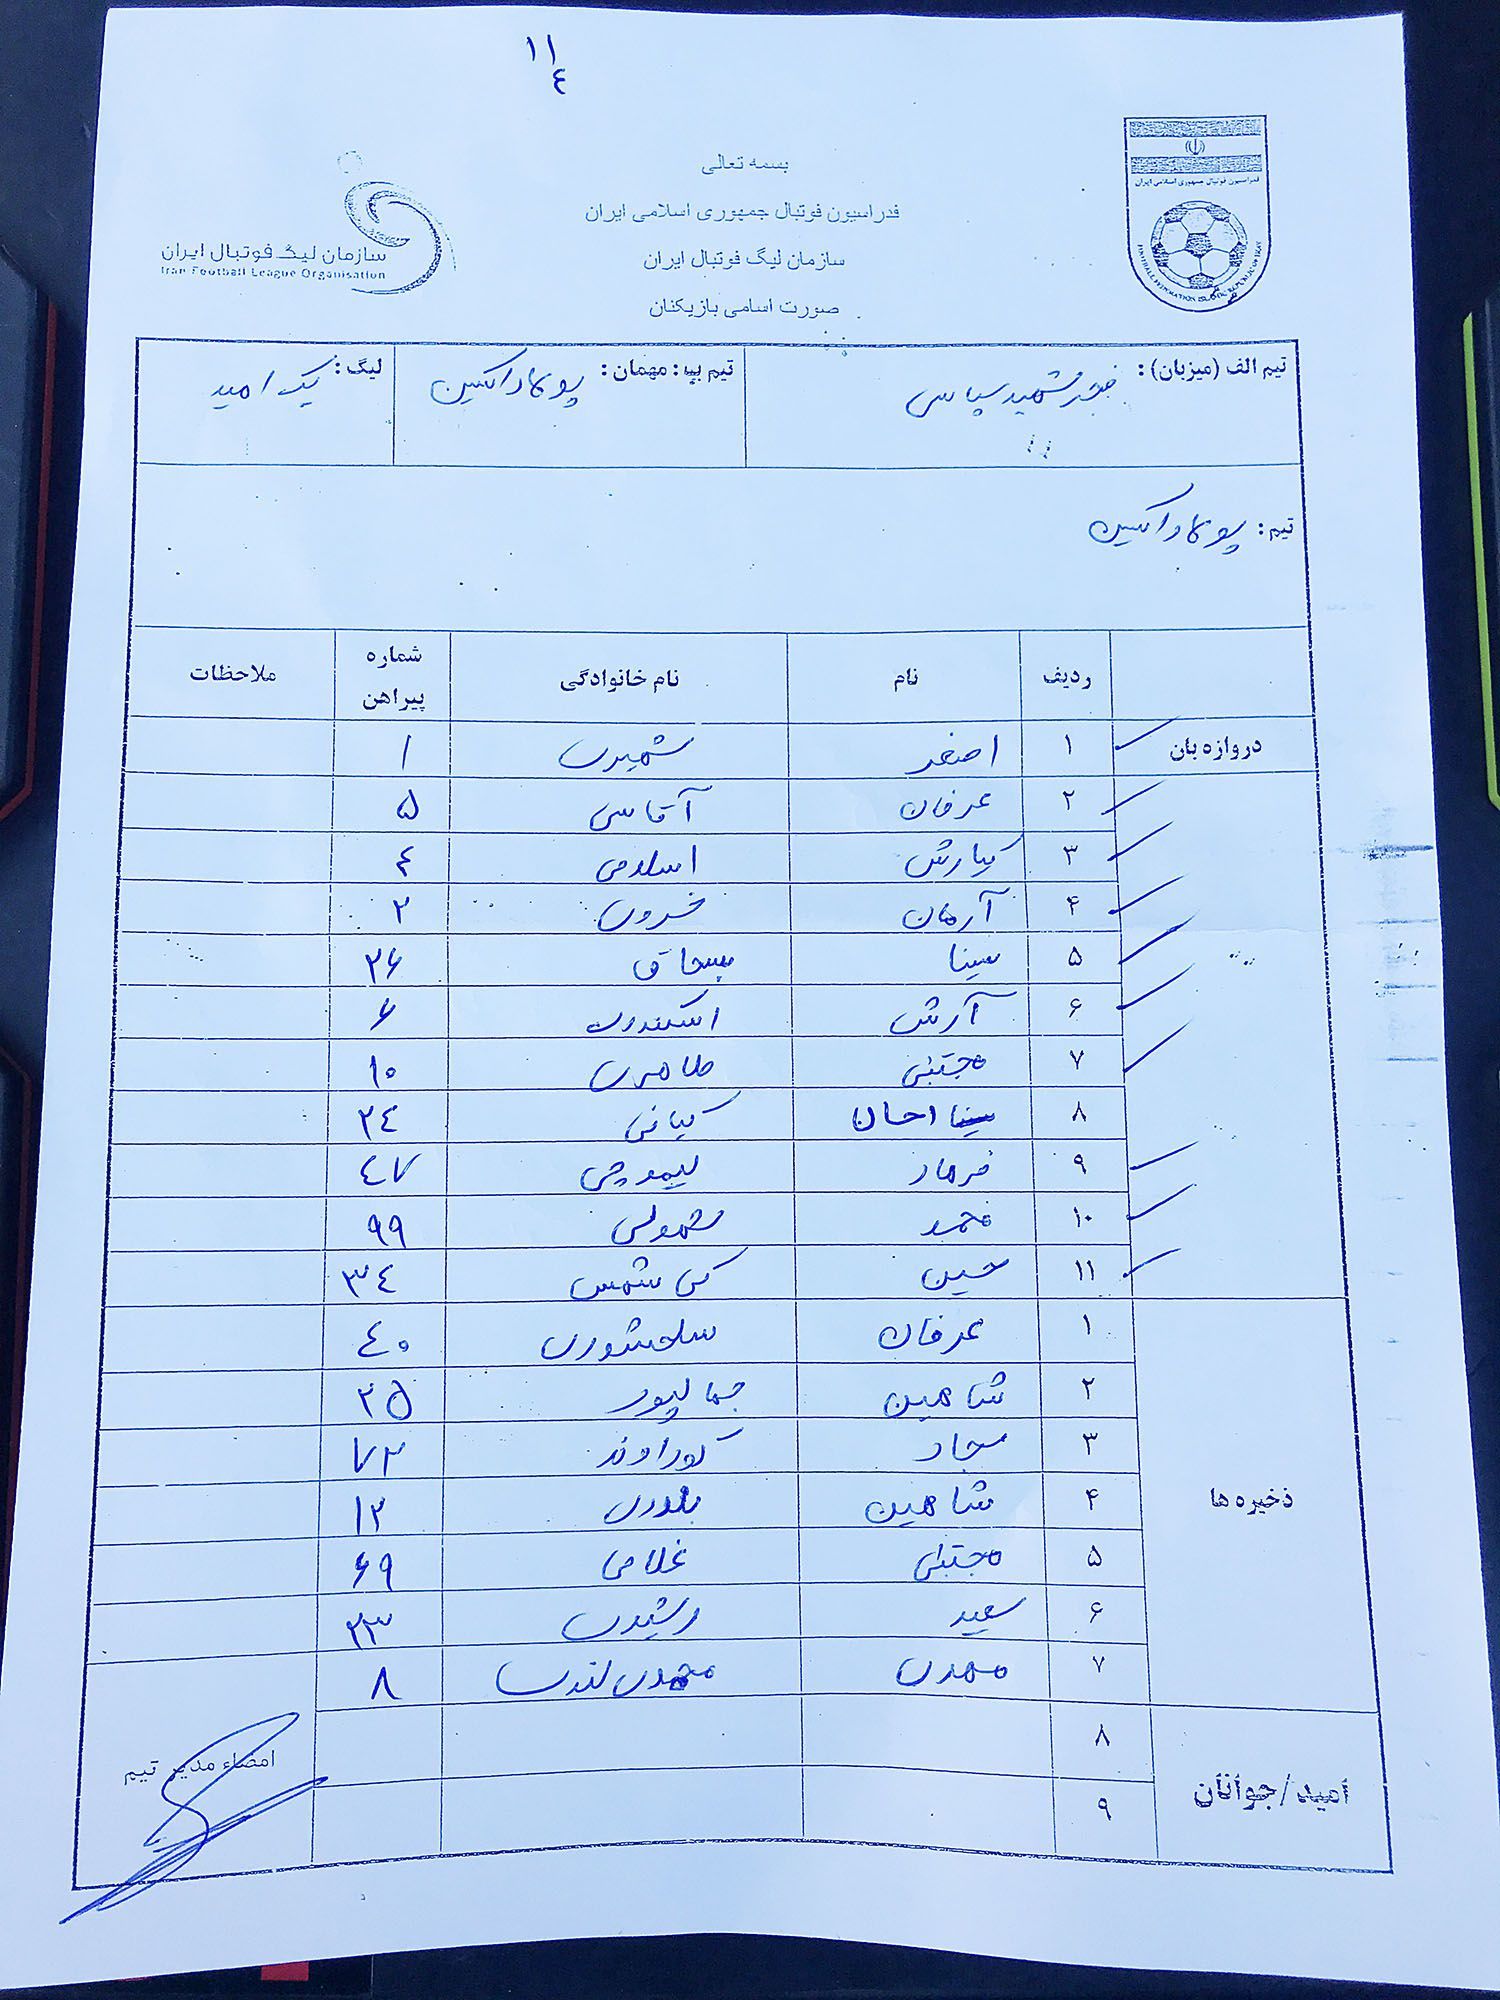 ۱۱
٤
بسمه تعالی
فدراسیون فوتبال جمهوری اسلامی ایران
سازمان لیگ فوتبال ایران
صورت اسامی بازیکنان
سازمان لیگ فوتبال ایران
Iran Football League Organisation
فدراسیون فوتبال جمهوری اسلامی ایران
FOOTBALL FEDERATION ISLAMIC REPUBLIC OF IRAN
تیم الف (میزبان): فجر شهید سپاسی
تیم ب: مهمان:
لیگ: یک امید
تیم:
ردیف نام نام خانوادگی شماره پیراهن ملاحظات
دروازه بان ۱ اصغر شهیدی ۱
۲ عرفان آقاسی ۵
۳ کیارش اسلامی ٤
۴ آرمان خسروی ۲
۵ سینا ۲۶
۶ آرش اسکندری ۶
۷ مجتبی طاهری ۱۰
۸ سینا احسان کیانی ۲٤
۹ فرهاد لیموچی ٤۷
۱۰ محمد شمولی ۹۹
۱۱ حسین کی شمس ۳٤
ذخیره ها
۱ عرفان سلحشوری ٤۰
۲ شاهین جمالپور ۲۵
۳ سجاد کوراوند ۷۲
۴ شاهین ۱۲
۵ مجتبی غلامی ۶۹
۶ سعید رشیدی ۲۳
۷ مهدی ۸
امید/جوانان
۸
۹
امضاء مدیر تیم